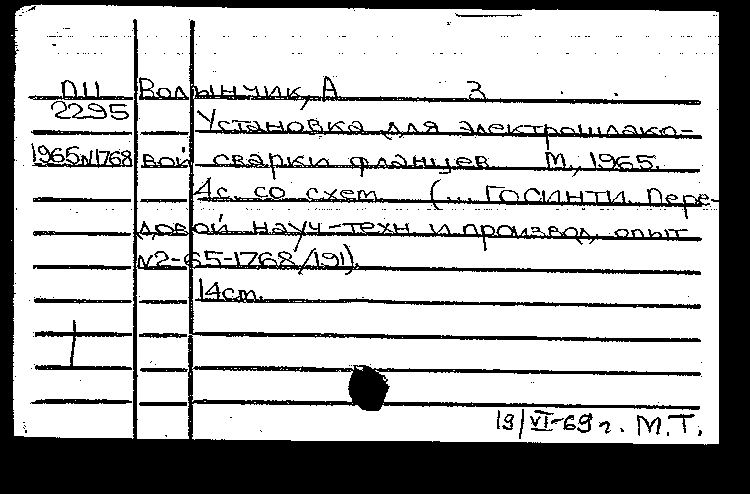 ПII Волынчик, А 3
2295 Установка для электрошлако-
1965N1768 вой сварки фланцев. М., 1965.
4с. со схем. (... ГОСИНТИ. Пере-
довой науч-техн и производ. опыт
N2-65-1768/191).
14см.
19/VI-69 г. М.Т.